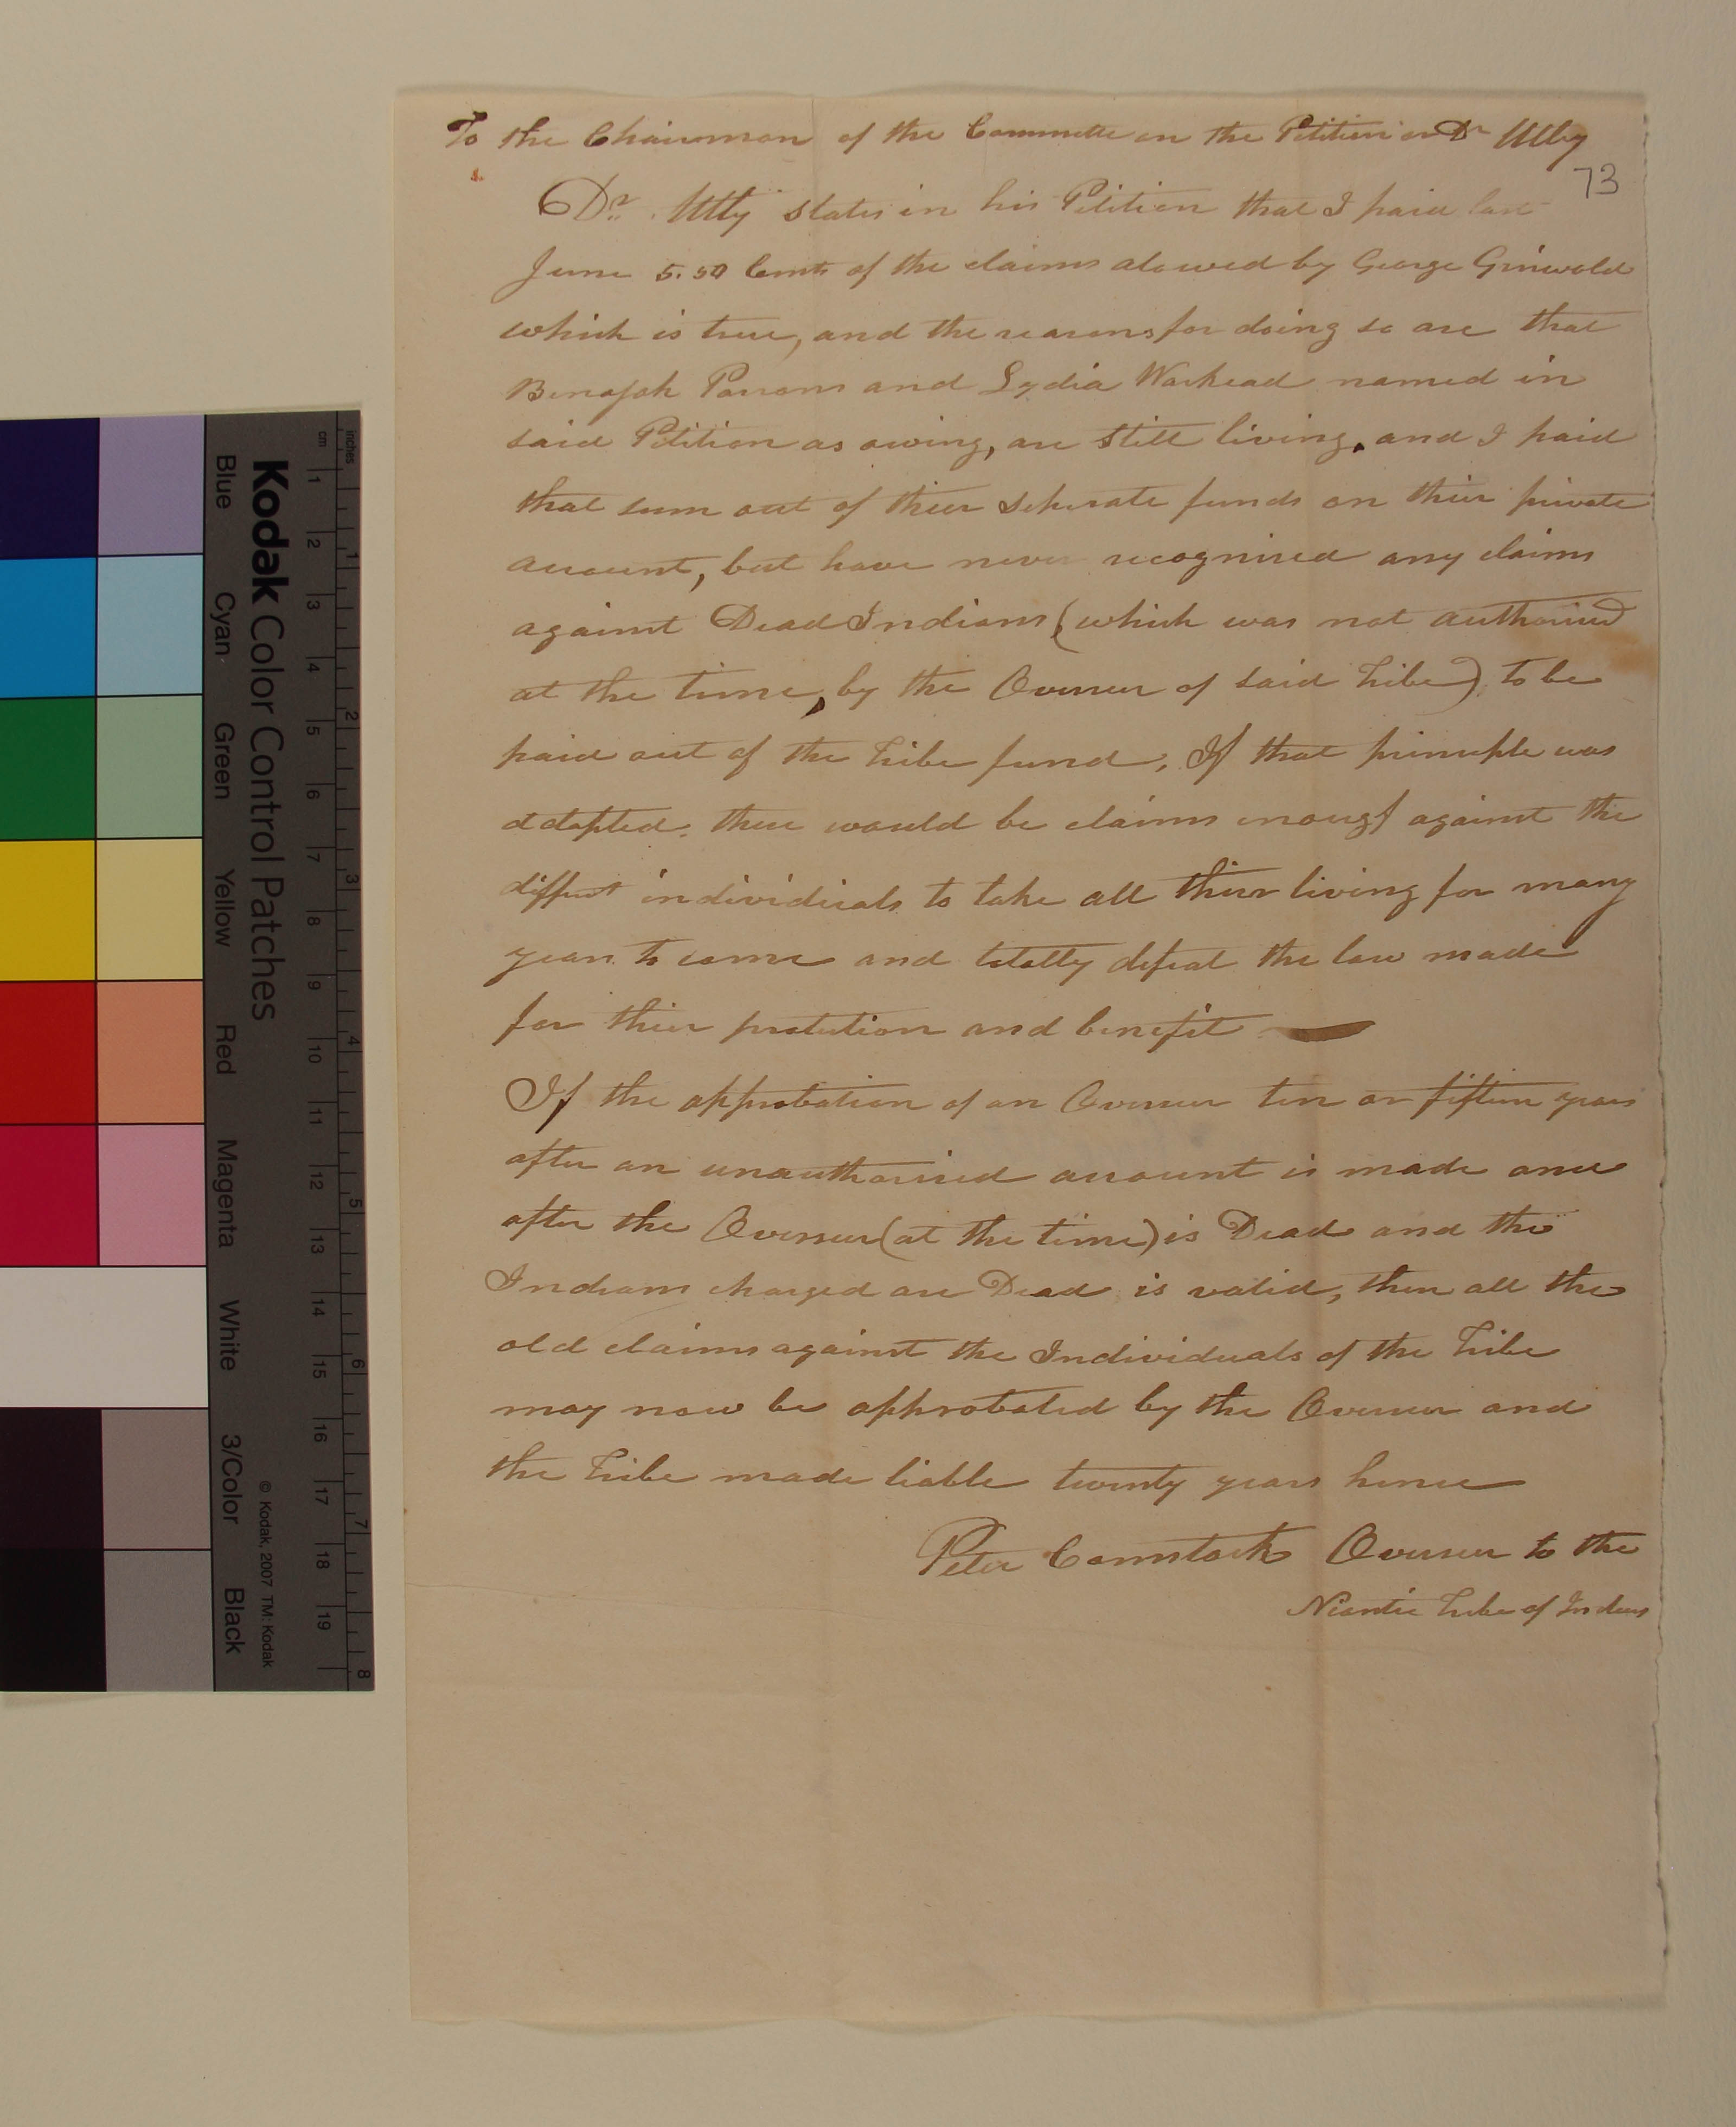 To the Chairman of the Committe on the Petition on Dr Utley
73
Dr. Utly states in his Petition that I paid last
June 5.50 Cents of the claims alowed by George Griswold
which is true, and the reasons for doing so are that
Benajah Parsons and Lydia Warhead named in
said Petition as owing, are still living, and I paid
that sum out of their seperate funds on their private
account, but have never recognised any claims
against Dead Indians (which was not authorised
at the time, by the Overseer of said Tribe) to be
paid out of the Tribe fund, If that principle was
addopted, there would be claims enough against the
diffrent individuals to take all their living for many
years to come and totally defeat the law made
for their protection and benefit —
If the approbation of an Overseer ten or fifteen years
after an unauthorised account is made and
after the Overseer (at the time) is Dead and the
Indians charged are Dead is valid, then all the
old claims against the Individuals of the Tribe
may now be approbated by the Overseer and
the Tribe made liable twenty years hence
Peter Comstock Overseer to the
Niantic Tribe of Indians
Kodak Color Control Patches
Blue Cyan Green Yellow Red Magenta White 3/Color Black
© Kodak, 2007 TM: Kodak
cm 1 2 3 4 5 6 7 8 9 10 11 12 13 14 15 16 17 18 19
inches 1 2 3 4 5 6 7 8